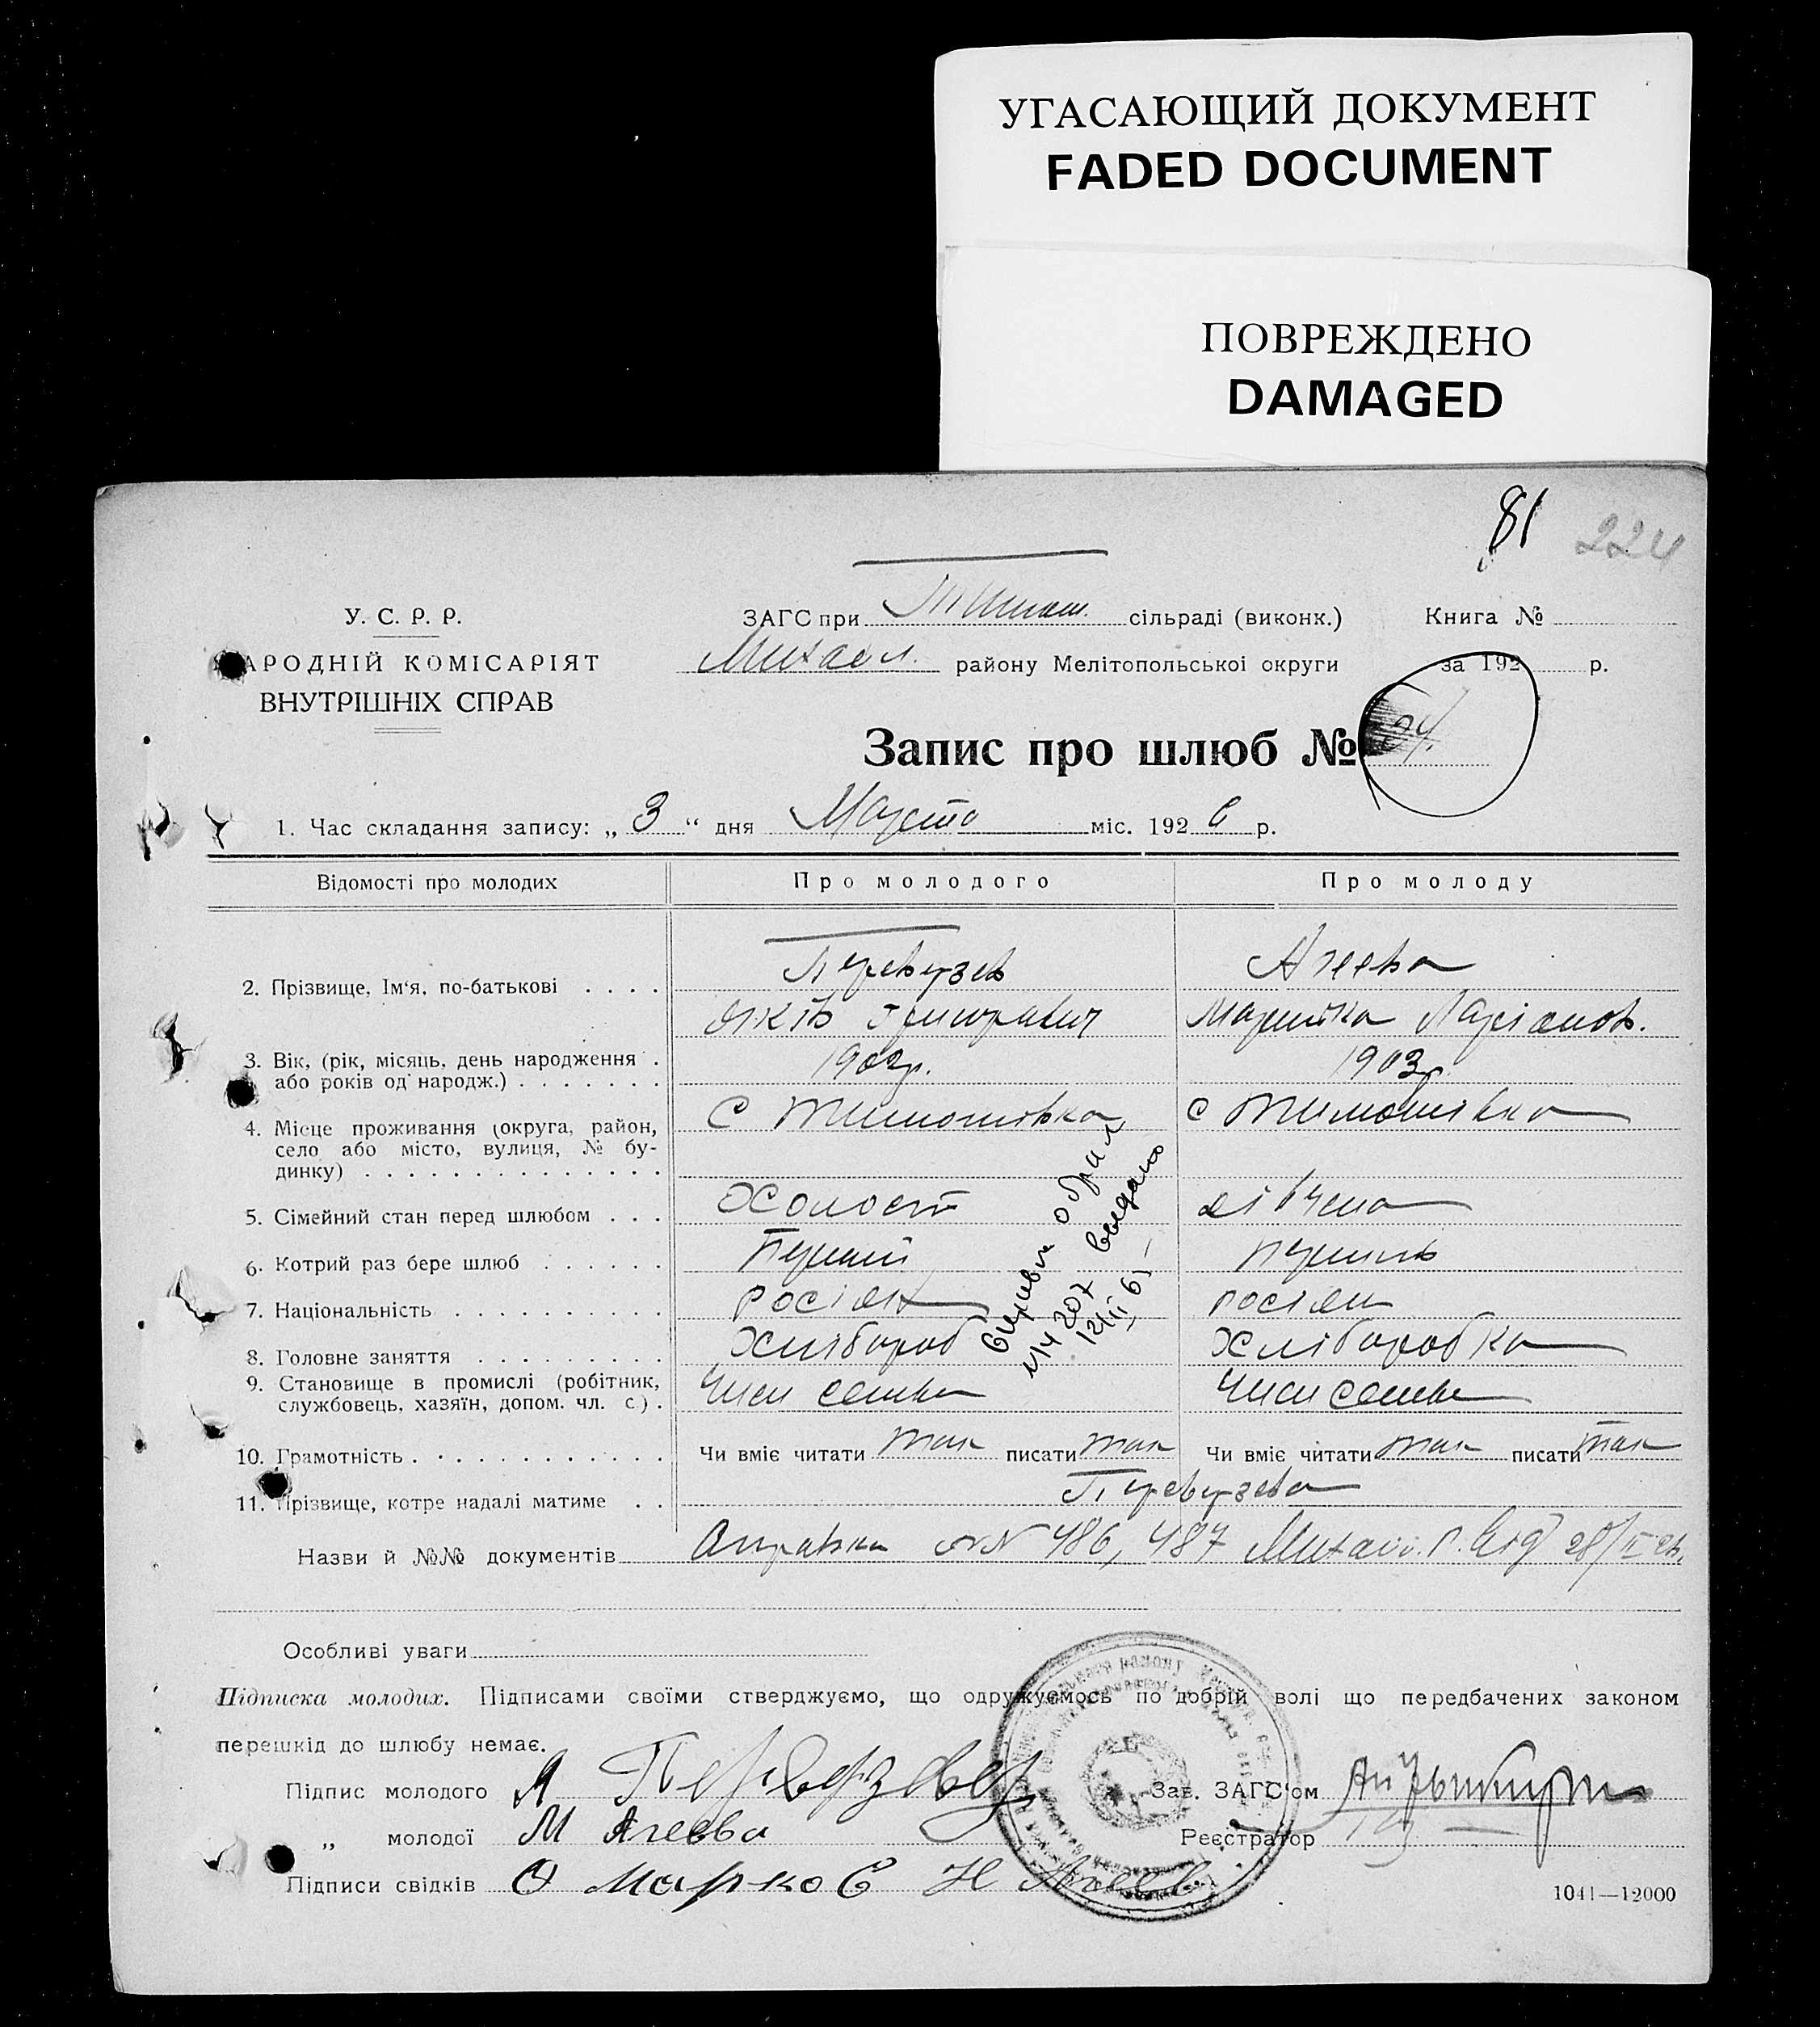 УГАСАЮЩИЙ ДОКУМЕНТ
FADED DOCUMENT
ПОВРЕЖДЕНО
DAMAGED
81 224
У. С. Р. Р.
АРОДНІЙ КОМІСАРІЯТ
ВНУТРІШНІХ СПРАВ
ЗАГС при Тимош. сільраді (виконк.)
Михайл. району Мелітопольської округи
Книга №
за 192 р.
Запис про шлюб № 24.
1. Час складання запису: „ 3 “ дня Марта міс. 192 6 р.
Відомості про молодих Про молодого Про молоду
2. Прізвище, Ім'я, по-батькові . . . . Перевузев Агеева
Яків Григорович Маришка Ларіонов.
3. Вік, (рік, місяць, день народження . 1902р. 1903р.
або років од народж.) . . . . . . .
4. Місце проживання (округа, район, с Тимошівка с Тимошівка
село або місто, вулиця, № бу-
динку) . . . . . . . . . . . . . .
5. Сімейний стан перед шлюбом . . . Холост дівчена
6. Котрий раз бере шлюб . . . . . . Перший перший
7. Національність . . . . . . . . . . росіян росіян
8. Головне заняття . . . . . . . . . Хлібороб Хлібородка
9. Становище в промислі (робітник, Член семьи Член семьи
службовець, хазяїн, допом. чл. с.) .
10. Грамотність . . . . . . . . . . . Чи вміє читати так писати так Чи вміє читати так писати так
11. Прізвище, котре надалі матиме . . Перевузева
Назви й №№ документів Справки №№ 486, 487 Михайл. 28/II 26.
выдано
Особливі уваги
Підписка молодих. Підписами своїми стверджуємо, що одружуємось по добрій волі що передбачених законом
перешкід до шлюбу немає.
Підпис молодого Я Перевузев
„ молодої М Агеева
Підписи свідків Ф Марков Н Агеев
Зав. ЗАГС'ом
Реєстратор
1041—12000